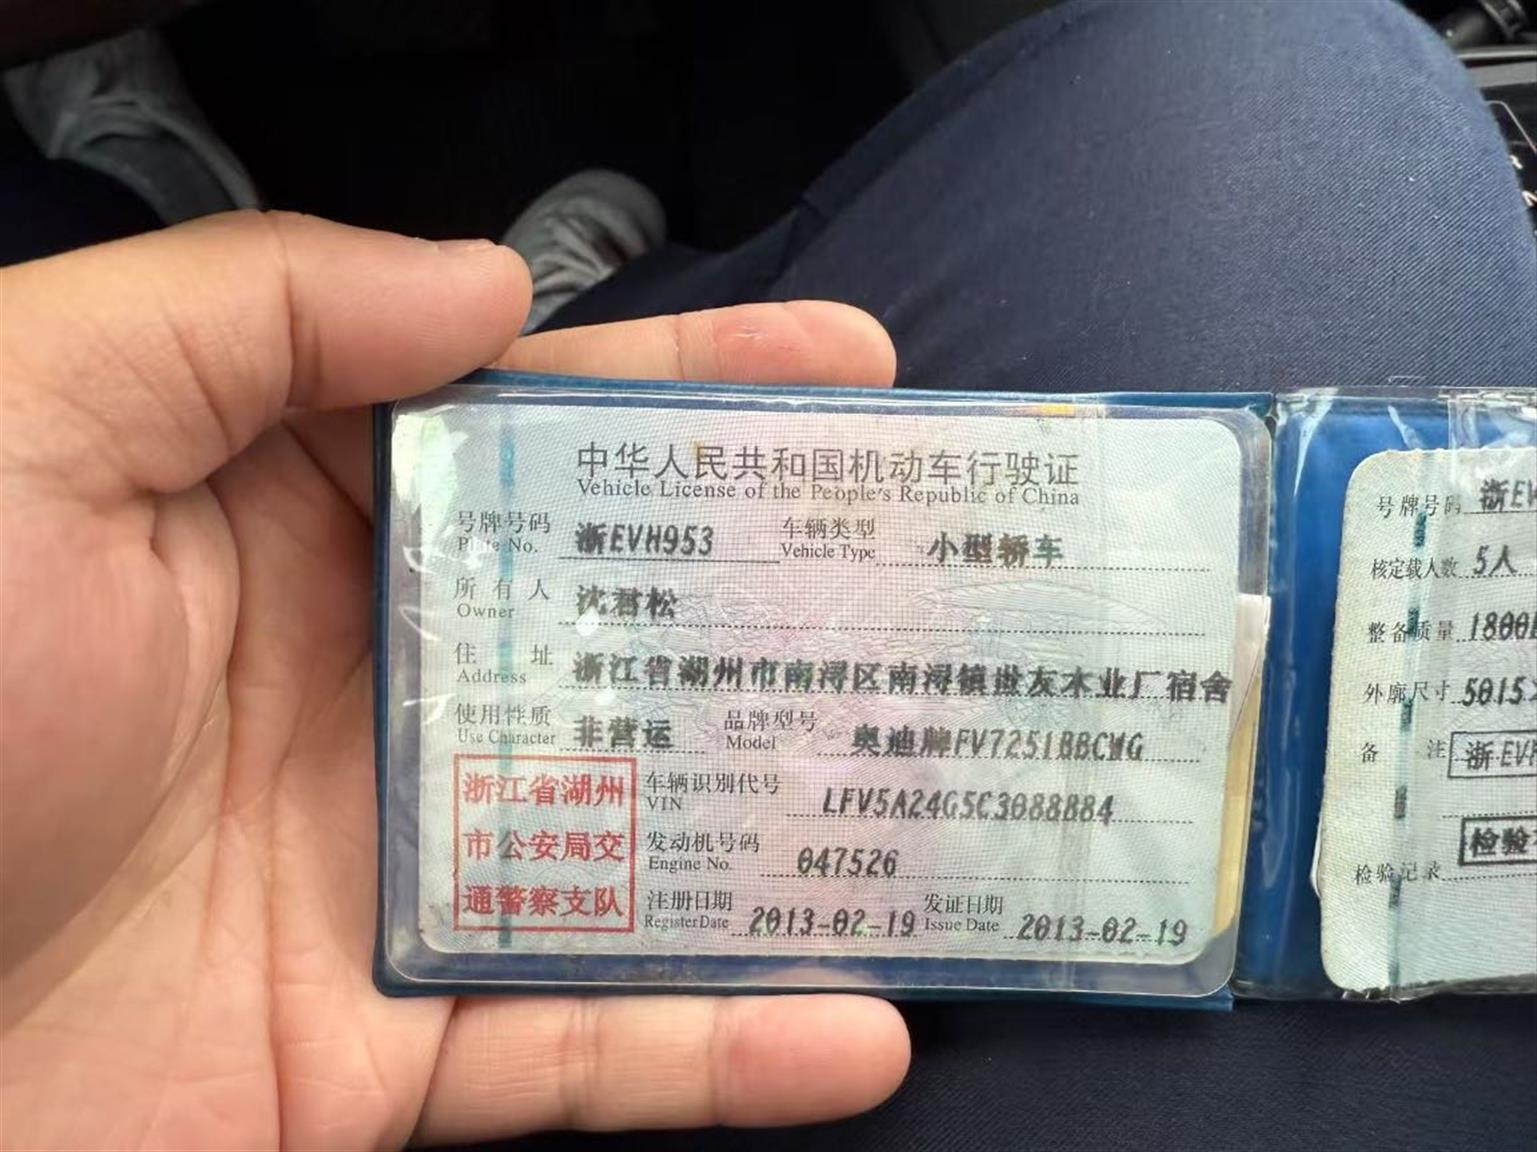 中华人民共和国机动车行驶证
Vehicle License of the People's Republic of China
号牌号码 浙EVH953 车辆类型 小型轿车
Plate No. Vehicle Type
所有人 沈君松
Owner
住址 浙江省湖州市南浔区南浔镇世友木业厂宿舍
Address
使用性质 非营运 品牌型号 奥迪牌FV7251BBCWG
Use Character Model
浙江省湖州
市公安局交
通警察支队
车辆识别代号 LFV5A24G5C3088884
VIN
发动机号码 047526
Engine No.
注册日期 2013-02-19 发证日期 2013-02-19
Register Date Issue Date
号牌号码 浙EV
核定载人数 5人
整备质量 1800
外廓尺寸 5015
备注 浙EV
检验
检验记录